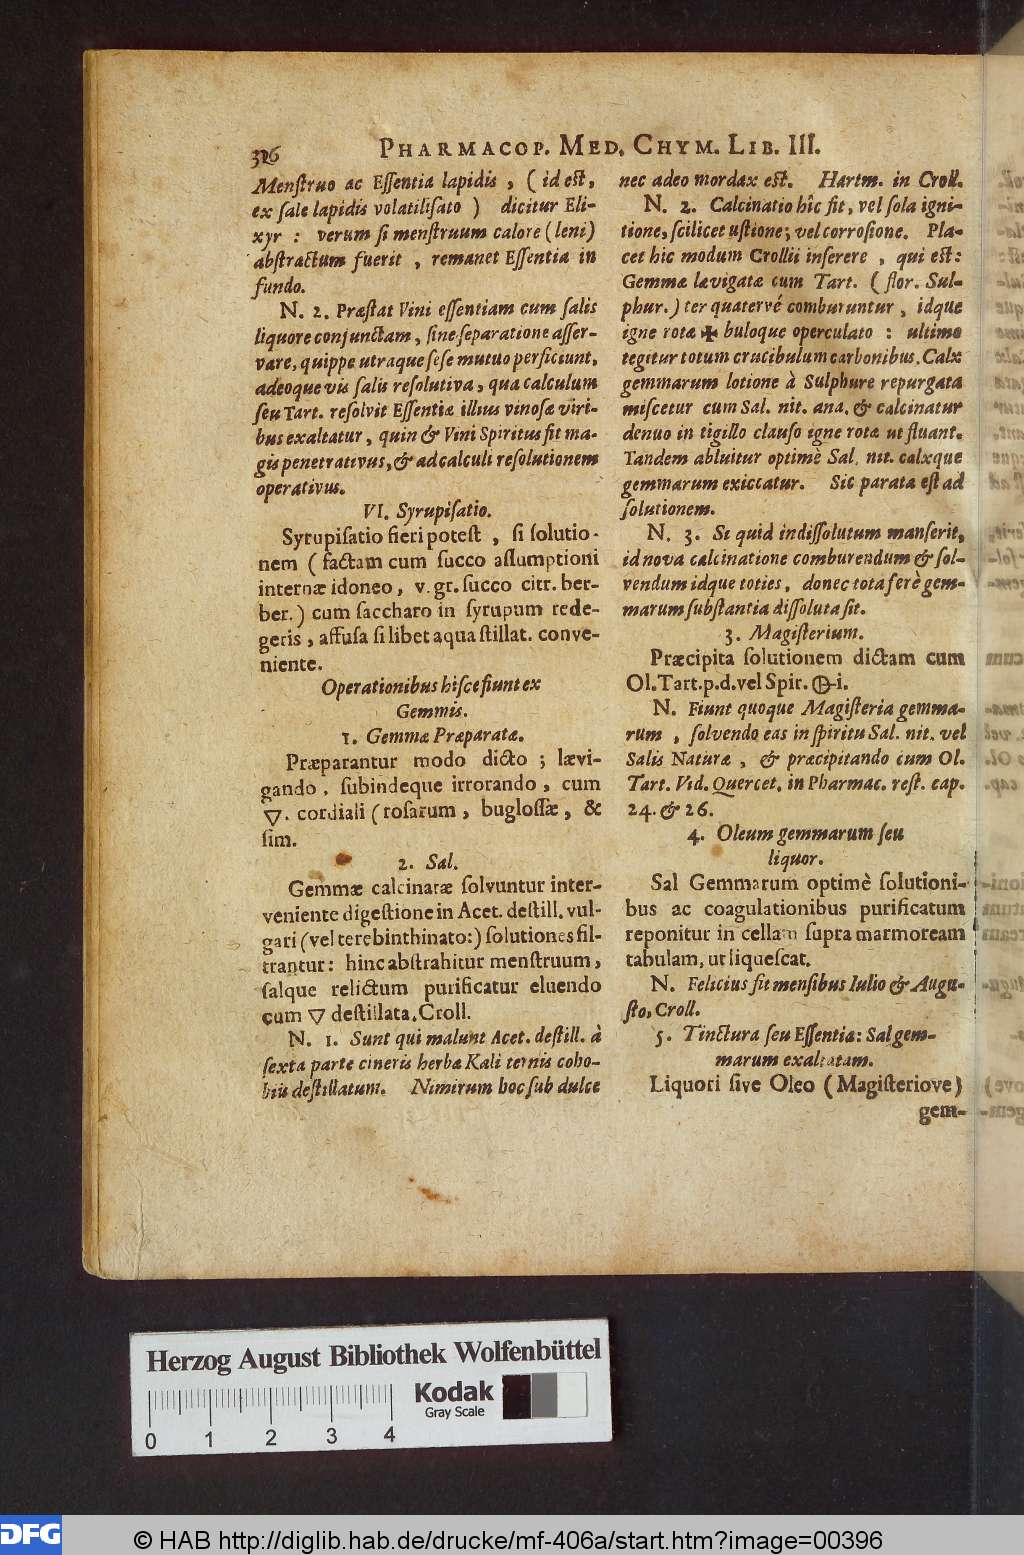 326
PHARMACOP. MED. CHYM. LIB. III.
Menſtruo ac Eſſentia lapidis , ( id eſt,
ex ſale lapidis volatiliſato ) dicitur Eli-
xyr : verum ſi menſtruum calore (leni)
abſtractum fuerit , remanet Eſſentia in
fundo.
N. 2. Præſtat Vini eſſentiam cum ſalis
liquore conjunctam, ſine ſeparatione aſſer-
vare, quippe utraque ſeſe mutuo perficiunt,
adeoque vis ſalis reſolutiva, qua calculum
ſeu Tart. reſolvit Eſſentiæ illius vinoſæ viri-
bus exaltatur, quin & Vini Spiritus fit ma-
gis penetrativus, & ad calculi reſolutionem
operativus.
VI. Syrupiſatio.
Syrupiſatio fieri poteſt , ſi ſolutio-
nem ( factam cum ſucco aſſumptioni
internæ idoneo, v. gr. ſucco citr. ber-
ber. ) cum ſaccharo in ſyrupum rede-
geris, affuſa ſi libet aqua ſtillat. conve-
niente.
Operationibus hiſce fiunt ex
Gemmis.
1. Gemmæ Præparatæ.
Præparantur modo dicto ; lævi-
gando, ſubindeque irrorando, cum
🜄. cordiali (roſarum, bugloſſæ, &
ſim.
2. Sal.
Gemmæ calcinatæ ſolvuntur inter-
veniente digeſtione in Acet. deſtill. vul-
gari (vel terebinthinato:) ſolutiones fil-
trantur: hinc abſtrahitur menſtruum,
ſalque relictum purificatur eluendo
cum 🜄 deſtillata. Croll.
N. 1. Sunt qui malunt Acet. deſtill. à
ſexta parte cineris herbæ Kali ternis coho-
biis deſtillatum. Nimirum hoc ſub dulce
nec adeo mordax eſt. Hartm. in Croll.
N. 2. Calcinatio hîc fit, vel ſola igni-
tione, ſcilicet uſtione; vel corroſione. Pla-
cet hic modum Crollii inſerere , qui eſt:
Gemmæ lævigatæ cum Tart. ( flor. Sul-
phur.) ter quatervé comburuntur , idque
igne rotæ ✠ buloque operculato : ultimo
tegitur totum crucibulum carbonibus. Calx
gemmarum lotione à Sulphure repurgata
miſcetur cum Sal. nit. ana. & calcinatur
denuo in tigillo clauſo igne rotæ ut fluant.
Tandem abluitur optimè Sal. nit. calxque
gemmarum exiccatur. Sic parata eſt ad
ſolutionem.
N. 3. Si quid indiſſolutum manſerit,
id nova calcinatione comburendum & ſol-
vendum idque toties, donec tota ferè gem-
marum ſubſtantia diſſoluta ſit.
3. Magiſterium.
Præcipita ſolutionem dictam cum
Ol. Tart. p. d. vel Spir. 🜖-i.
N. Fiunt quoque Magiſteria gemma-
rum , ſolvendo eas in ſpiritu Sal. nit. vel
Salis Naturæ , & præcipitando cum Ol.
Tart. Vid. Quercet. in Pharmac. reſt. cap.
24. & 26.
4. Oleum gemmarum ſeu
liquor.
Sal Gemmarum optimè ſolutioni-
bus ac coagulationibus purificatum
reponitur in cellam ſupra marmoream
tabulam, ut liqueſcat.
N. Felicius fit menſibus Iulio & Augu-
ſto, Croll.
5. Tinctura ſeu Eſſentia: Sal gem-
marum exaltatam.
Liquori ſive Oleo (Magiſteriove)
gem-
Herzog August Bibliothek Wolfenbüttel
Kodak
Gray Scale
0 1 2 3 4
DFG
© HAB http://diglib.hab.de/drucke/mf-406a/start.htm?image=00396